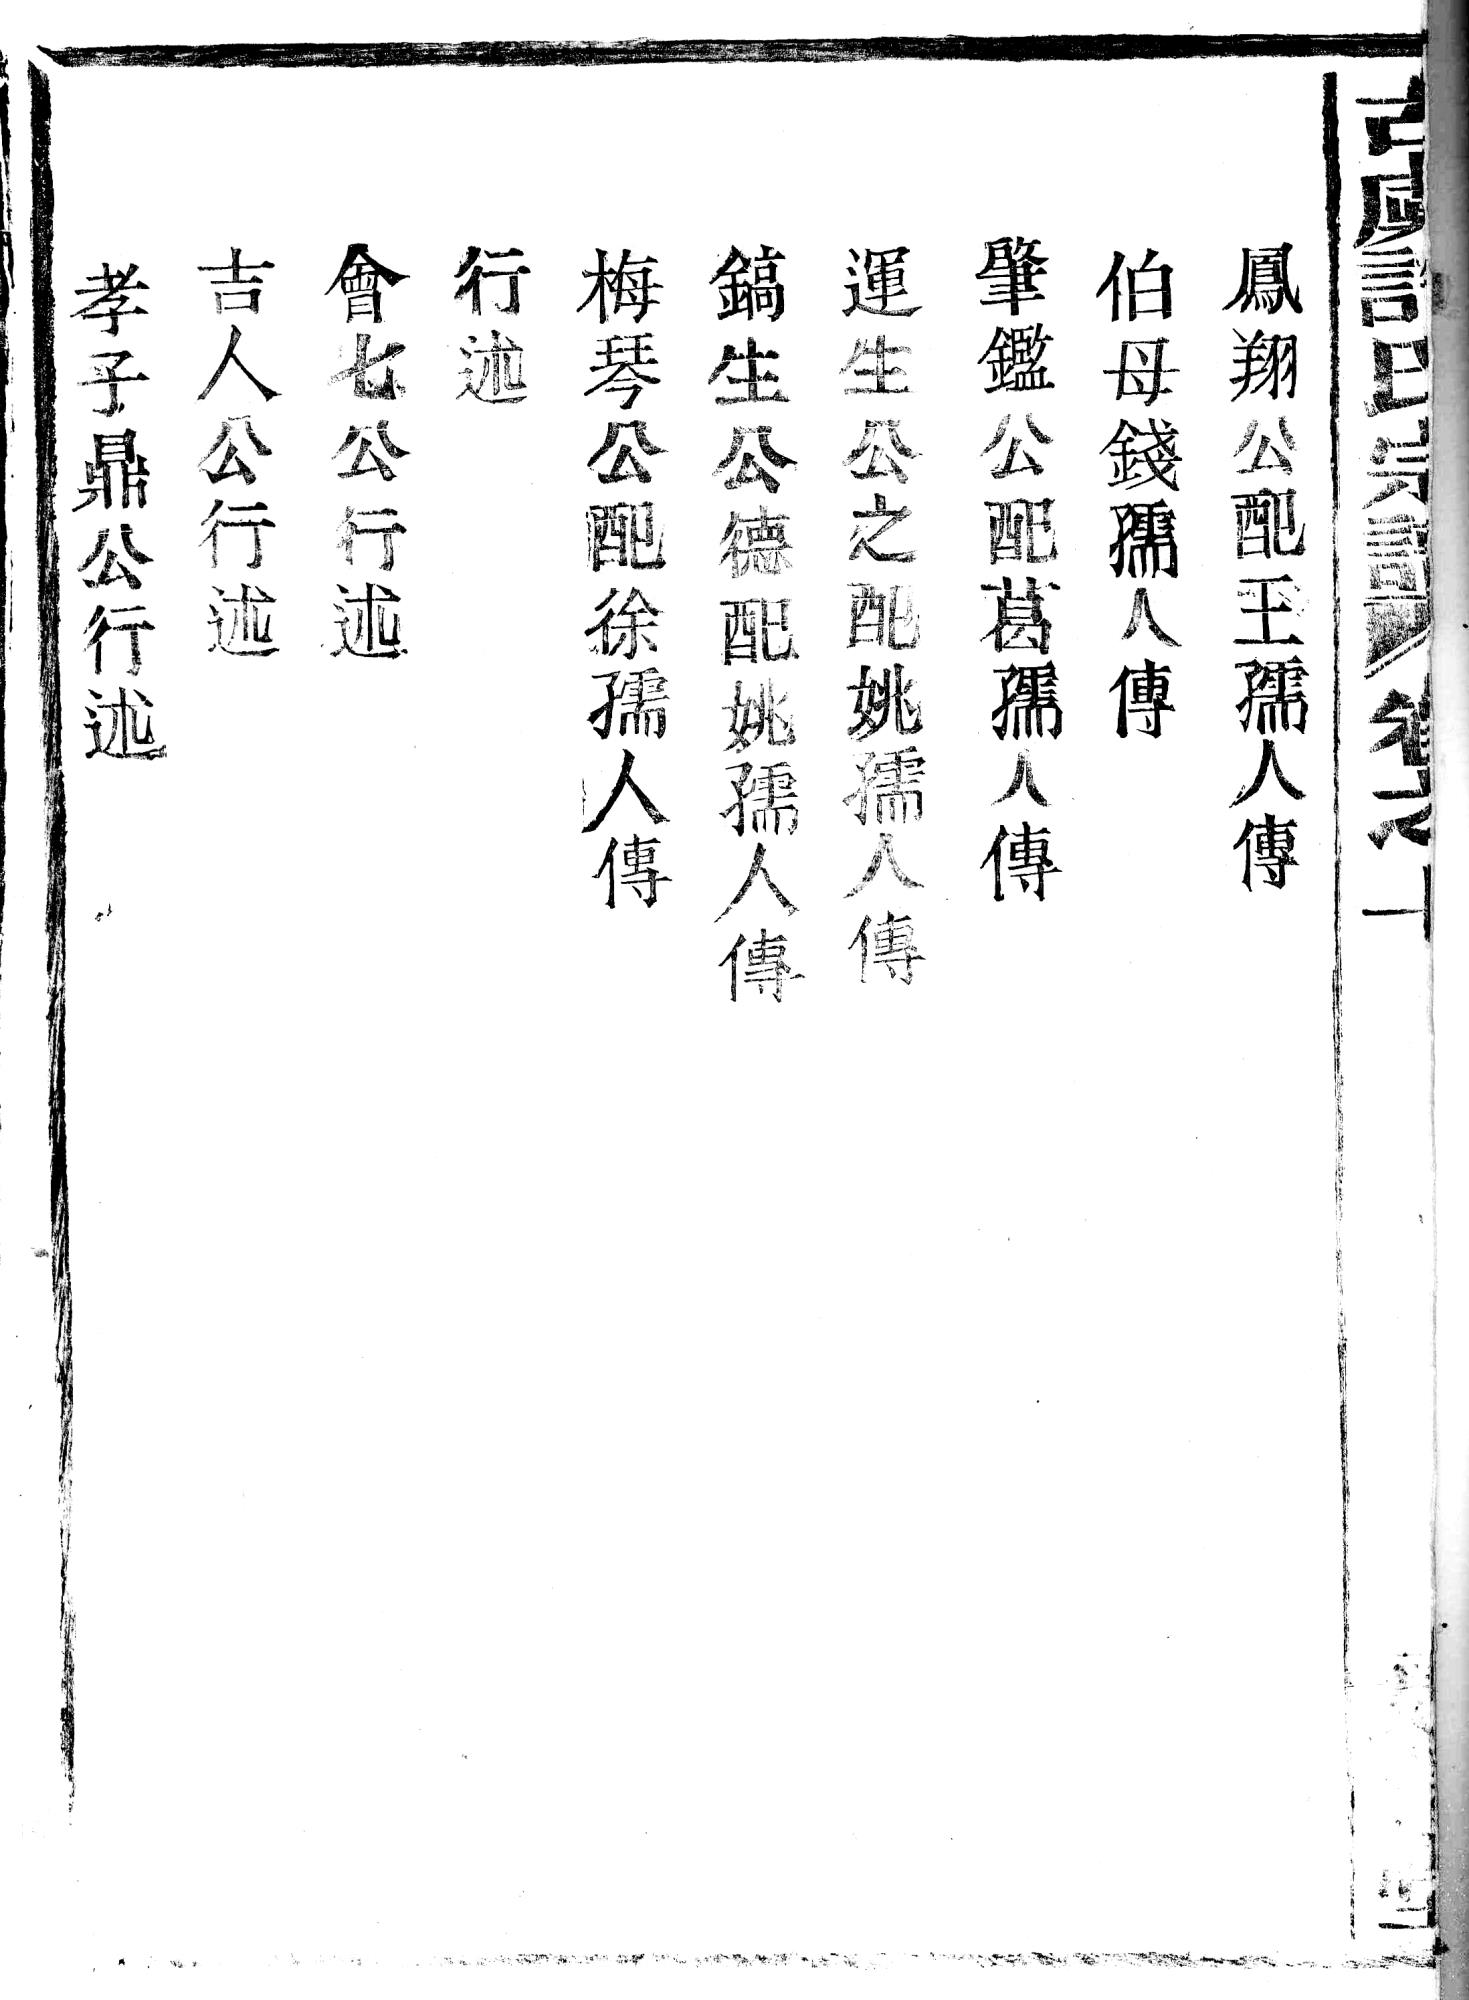 氏宗譜 卷之十
鳳翔公配王孺人傳
伯母錢孺人傳
肇鑑公配葛孺人傳
運生公之配姚孺人傳
鎬生公德配姚孺人傳
梅琴公配徐孺人傳
行述
會七公行述
吉人公行述
孝子鼎公行述